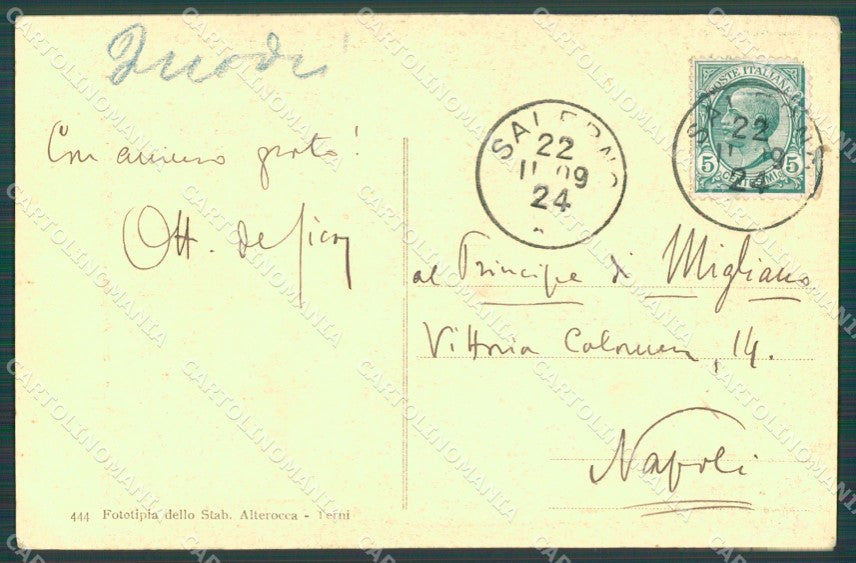 Con animo grato!
Ott. de Sica
SALERNO
22
11 09
24
POSTE ITALIANE
5 CENTESIMI 5
SALERNO
22
11 9
24
al Principe di Migliano
Vittoria Colonna, 14.
Napoli
444 Fototipia dello Stab. Alterocca - Terni
CARTOLINOMANIA